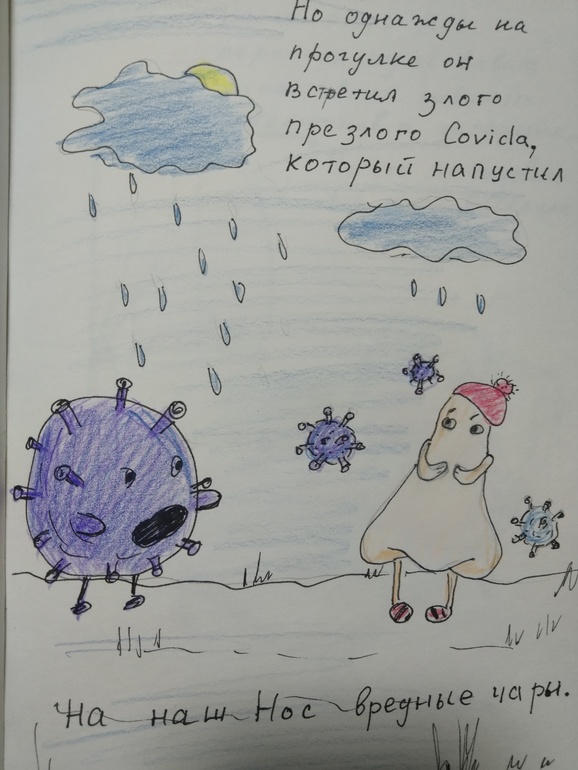 Но однажды на
прогулке он
встретил злого
презлого Covida,
который напустил
На наш Нос вредные чары.